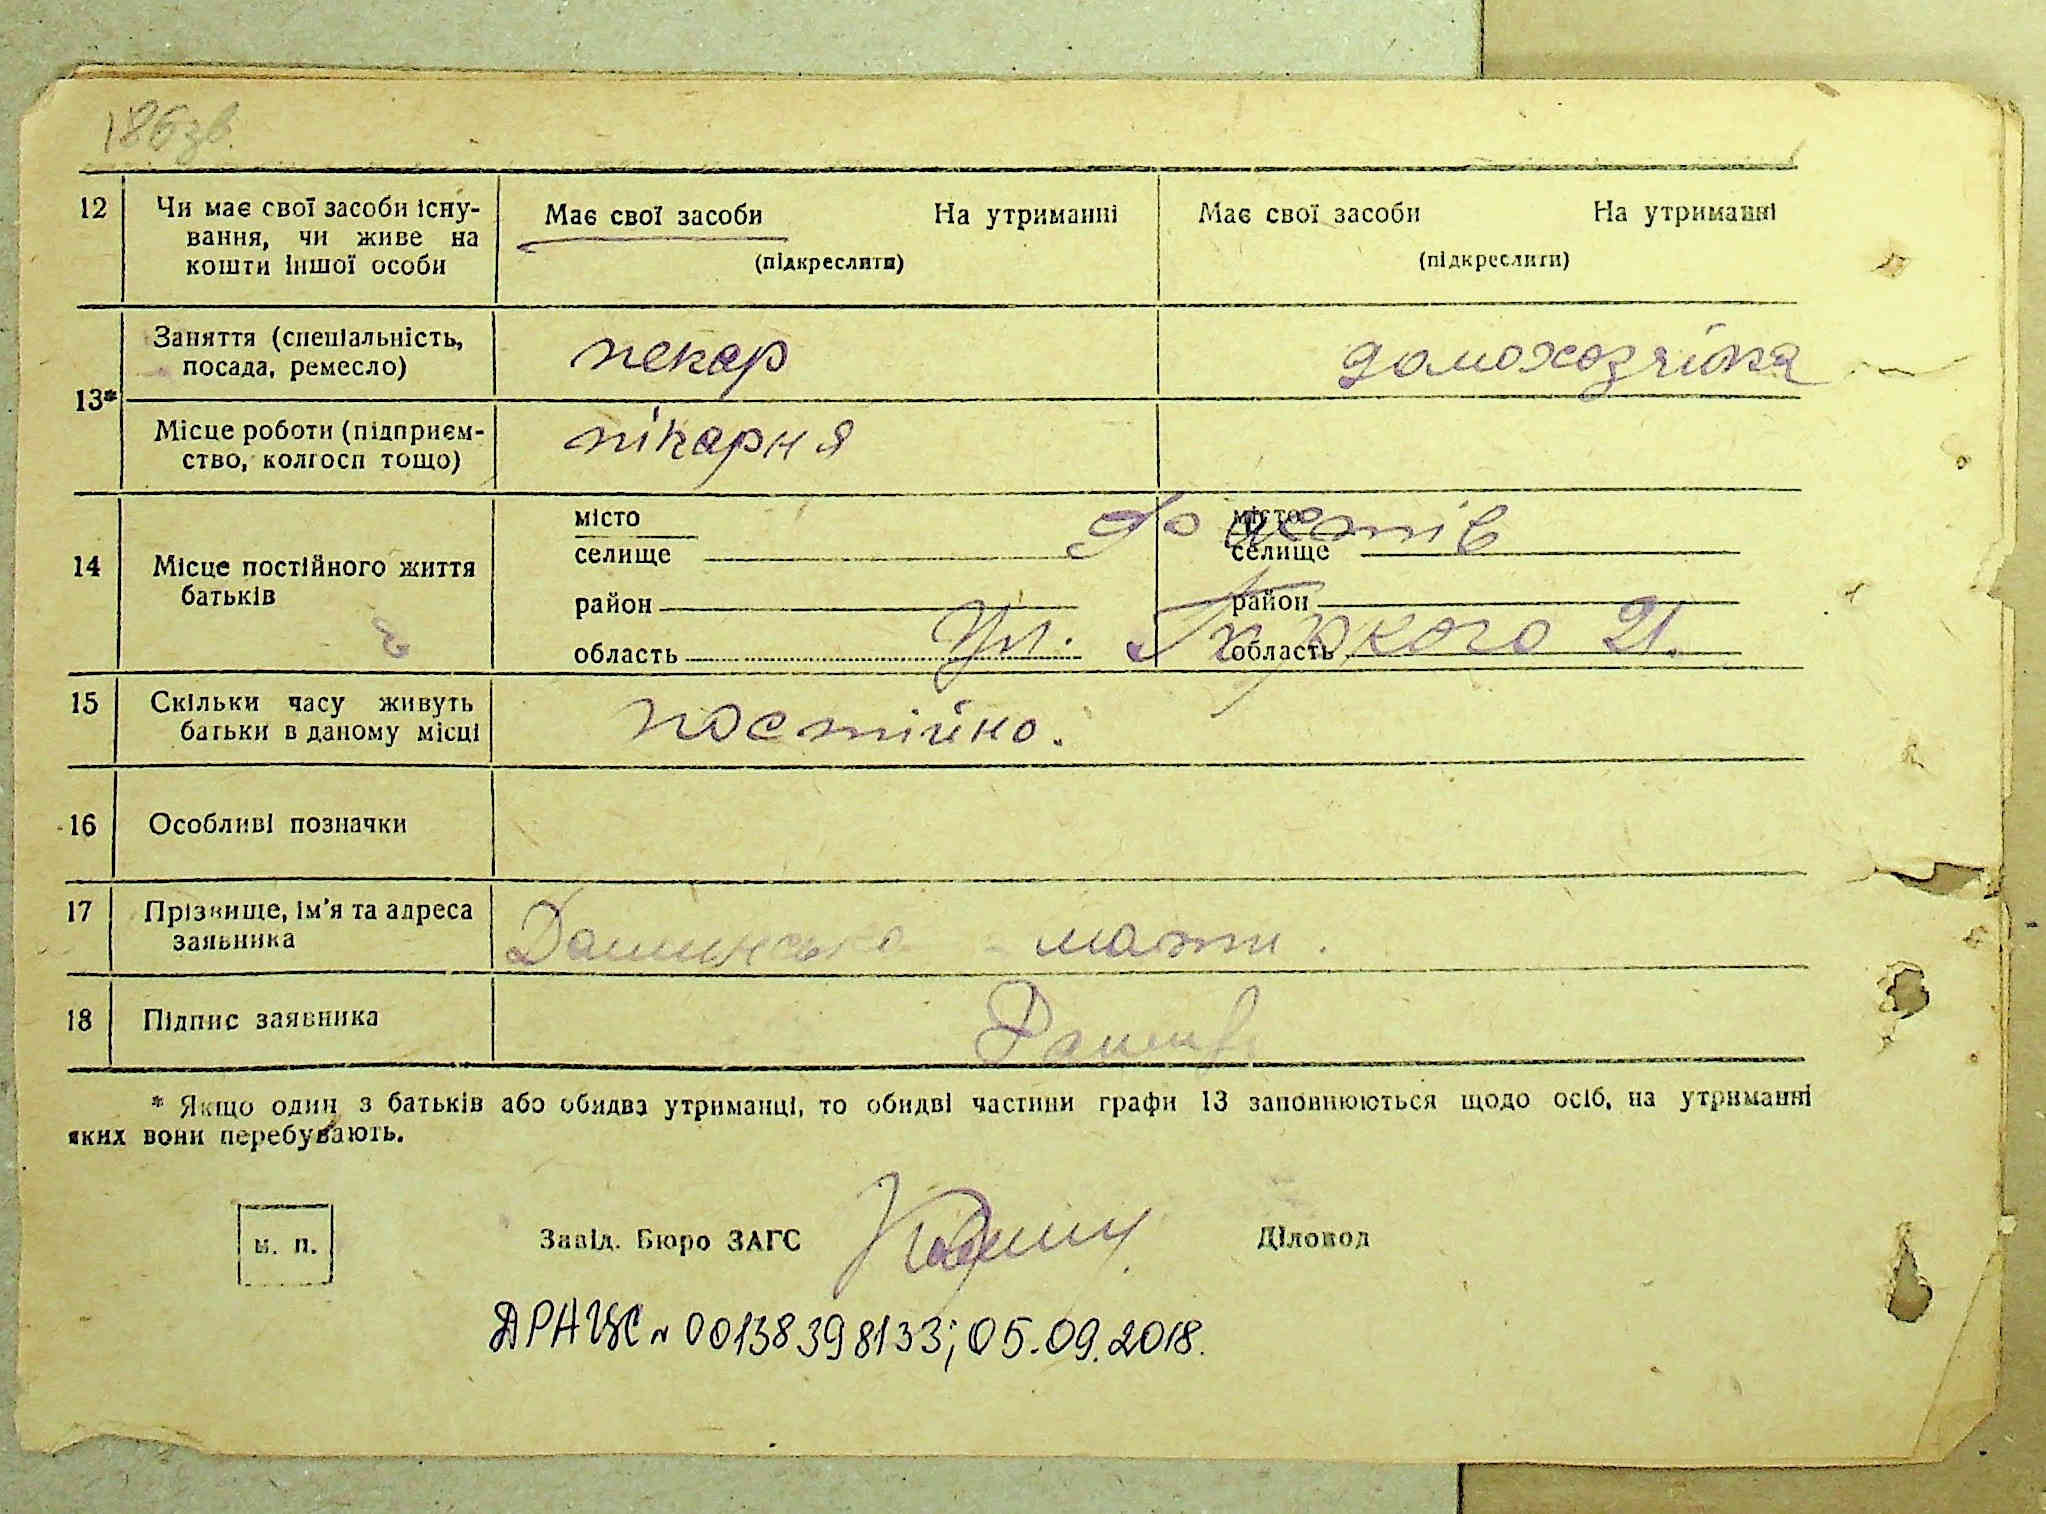 186зв.
12 Чи має свої засоби існу- Має свої засоби На утриманні Має свої засоби На утриманні
вання, чи живе на
кошти іншої особи (підкреслити) (підкреслити)
13* Заняття (спеціальність, пекар домохозяїка
посада, ремесло)
Місце роботи (підприєм- пікарня
ство, колгосп тощо)
14 Місце постійного життя батьків
місто місто
селище Фастів селище
район район
область Ул. Горького 21. область
15 Скільки часу живуть постійно.
батьки в даному місці
16 Особливі позначки
17 Прізвище, ім'я та адреса Дашинська - мати.
заявника
18 Підпис заявника
* Якщо один з батьків або обидва утриманці, то обидві частини графи 13 заповнюються щодо осіб, на утриманні
яких вони перебувають.
м. п. Завід. Бюро ЗАГС Діловод
ДРАЦС № 00138398133; 05.09.2018.